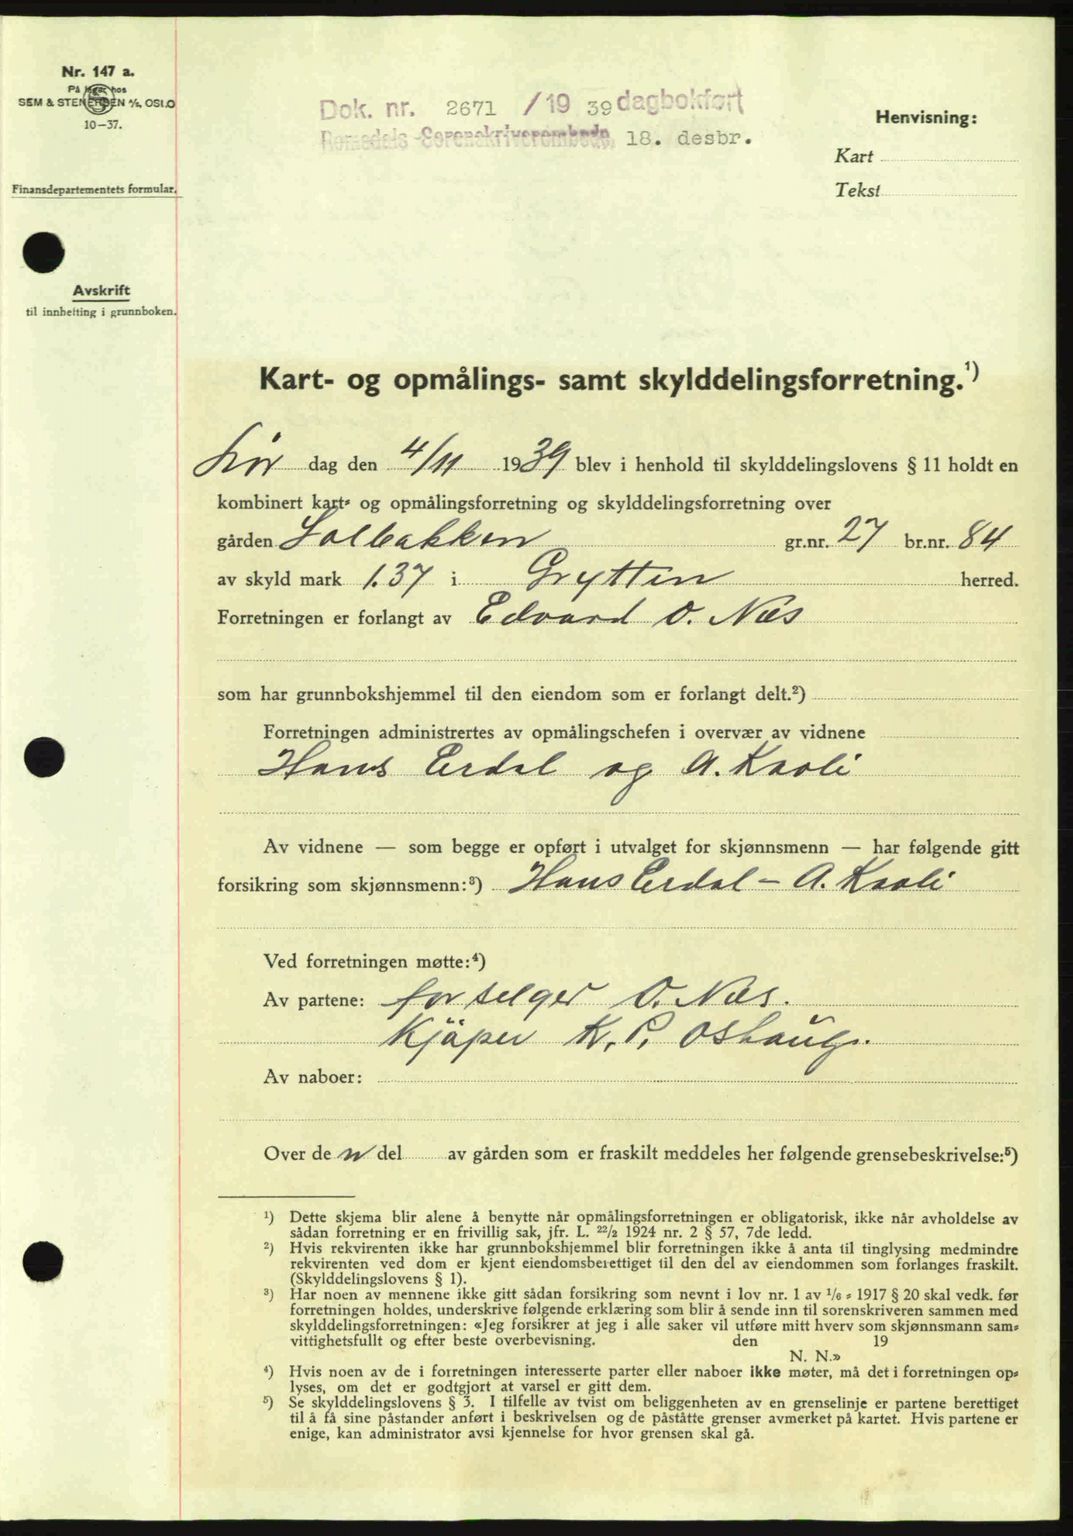 Nr. 147 a.
På lager hos
SEM & STENERSEN A/S, OSLO
10-37.
Finansdepartementets formular.
Avskrift
til innhefting i grunnboken.
Dok. nr. 2671 /19 39 dagbokført
Romsdals Sorenskriverembede, 18. desbr.
Henvisning:
Kart
Tekst
Kart- og opmålings- samt skylddelingsforretning.¹)
Lør dag den 4/11 1939 blev i henhold til skylddelingslovens § 11 holdt en
kombinert kart- og opmålingsforretning og skylddelingsforretning over
gården Solbakken gr.nr. 27 br.nr. 84
av skyld mark 1.37 i Grytten herred.
Forretningen er forlangt av Edvard O. Næs
som har grunnbokshjemmel til den eiendom som er forlangt delt.²)
Forretningen administrertes av opmålingschefen i overvær av vidnene
Hans Erdal og A. Kavli
Av vidnene — som begge er opført i utvalget for skjønnsmenn — har følgende gitt
forsikring som skjønnsmenn:³) Hans Erdal – A. Kavli
Ved forretningen møtte:⁴)
Av partene: for selger O. Næs.
Kjøper K. P. Oshaug.
Av naboer:
Over de n del av gården som er fraskilt meddeles her følgende grensebeskrivelse:⁵)
¹) Dette skjema blir alene å benytte når opmålingsforretningen er obligatorisk, ikke når avholdelse av
sådan forretning er en frivillig sak, jfr. L. 22/2 1924 nr. 2 § 57, 7de ledd.
²) Hvis rekvirenten ikke har grunnbokshjemmel blir forretningen ikke å anta til tinglysing medmindre
rekvirenten ved dom er kjent eiendomsberettiget til den del av eiendommen som forlanges fraskilt.
(Skylddelingslovens § 1).
³) Har noen av mennene ikke gitt sådan forsikring som nevnt i lov nr. 1 av 1/6 - 1917 § 20 skal vedk. før
forretningen holdes, underskrive følgende erklæring som blir å sende inn til sorenskriveren sammen med
skylddelingsforretningen: «Jeg forsikrer at jeg i alle saker vil utføre mitt hverv som skjønnsmann sam-
vittighetsfullt og efter beste overbevisning. den 19
N. N.»
⁴) Hvis noen av de i forretningen interesserte parter eller naboer ikke møter, må det i forretningen op-
lyses, om det er godtgjort at varsel er gitt dem.
⁵) Se skylddelingslovens § 3. I tilfelle av tvist om beliggenheten av en grenselinje er partene berettiget
til å få sine påstander anført i beskrivelsen og de påståtte grenser avmerket på kartet. Hvis partene er
enige, kan administrator avsi kjennelse for hvor grensen skal gå.